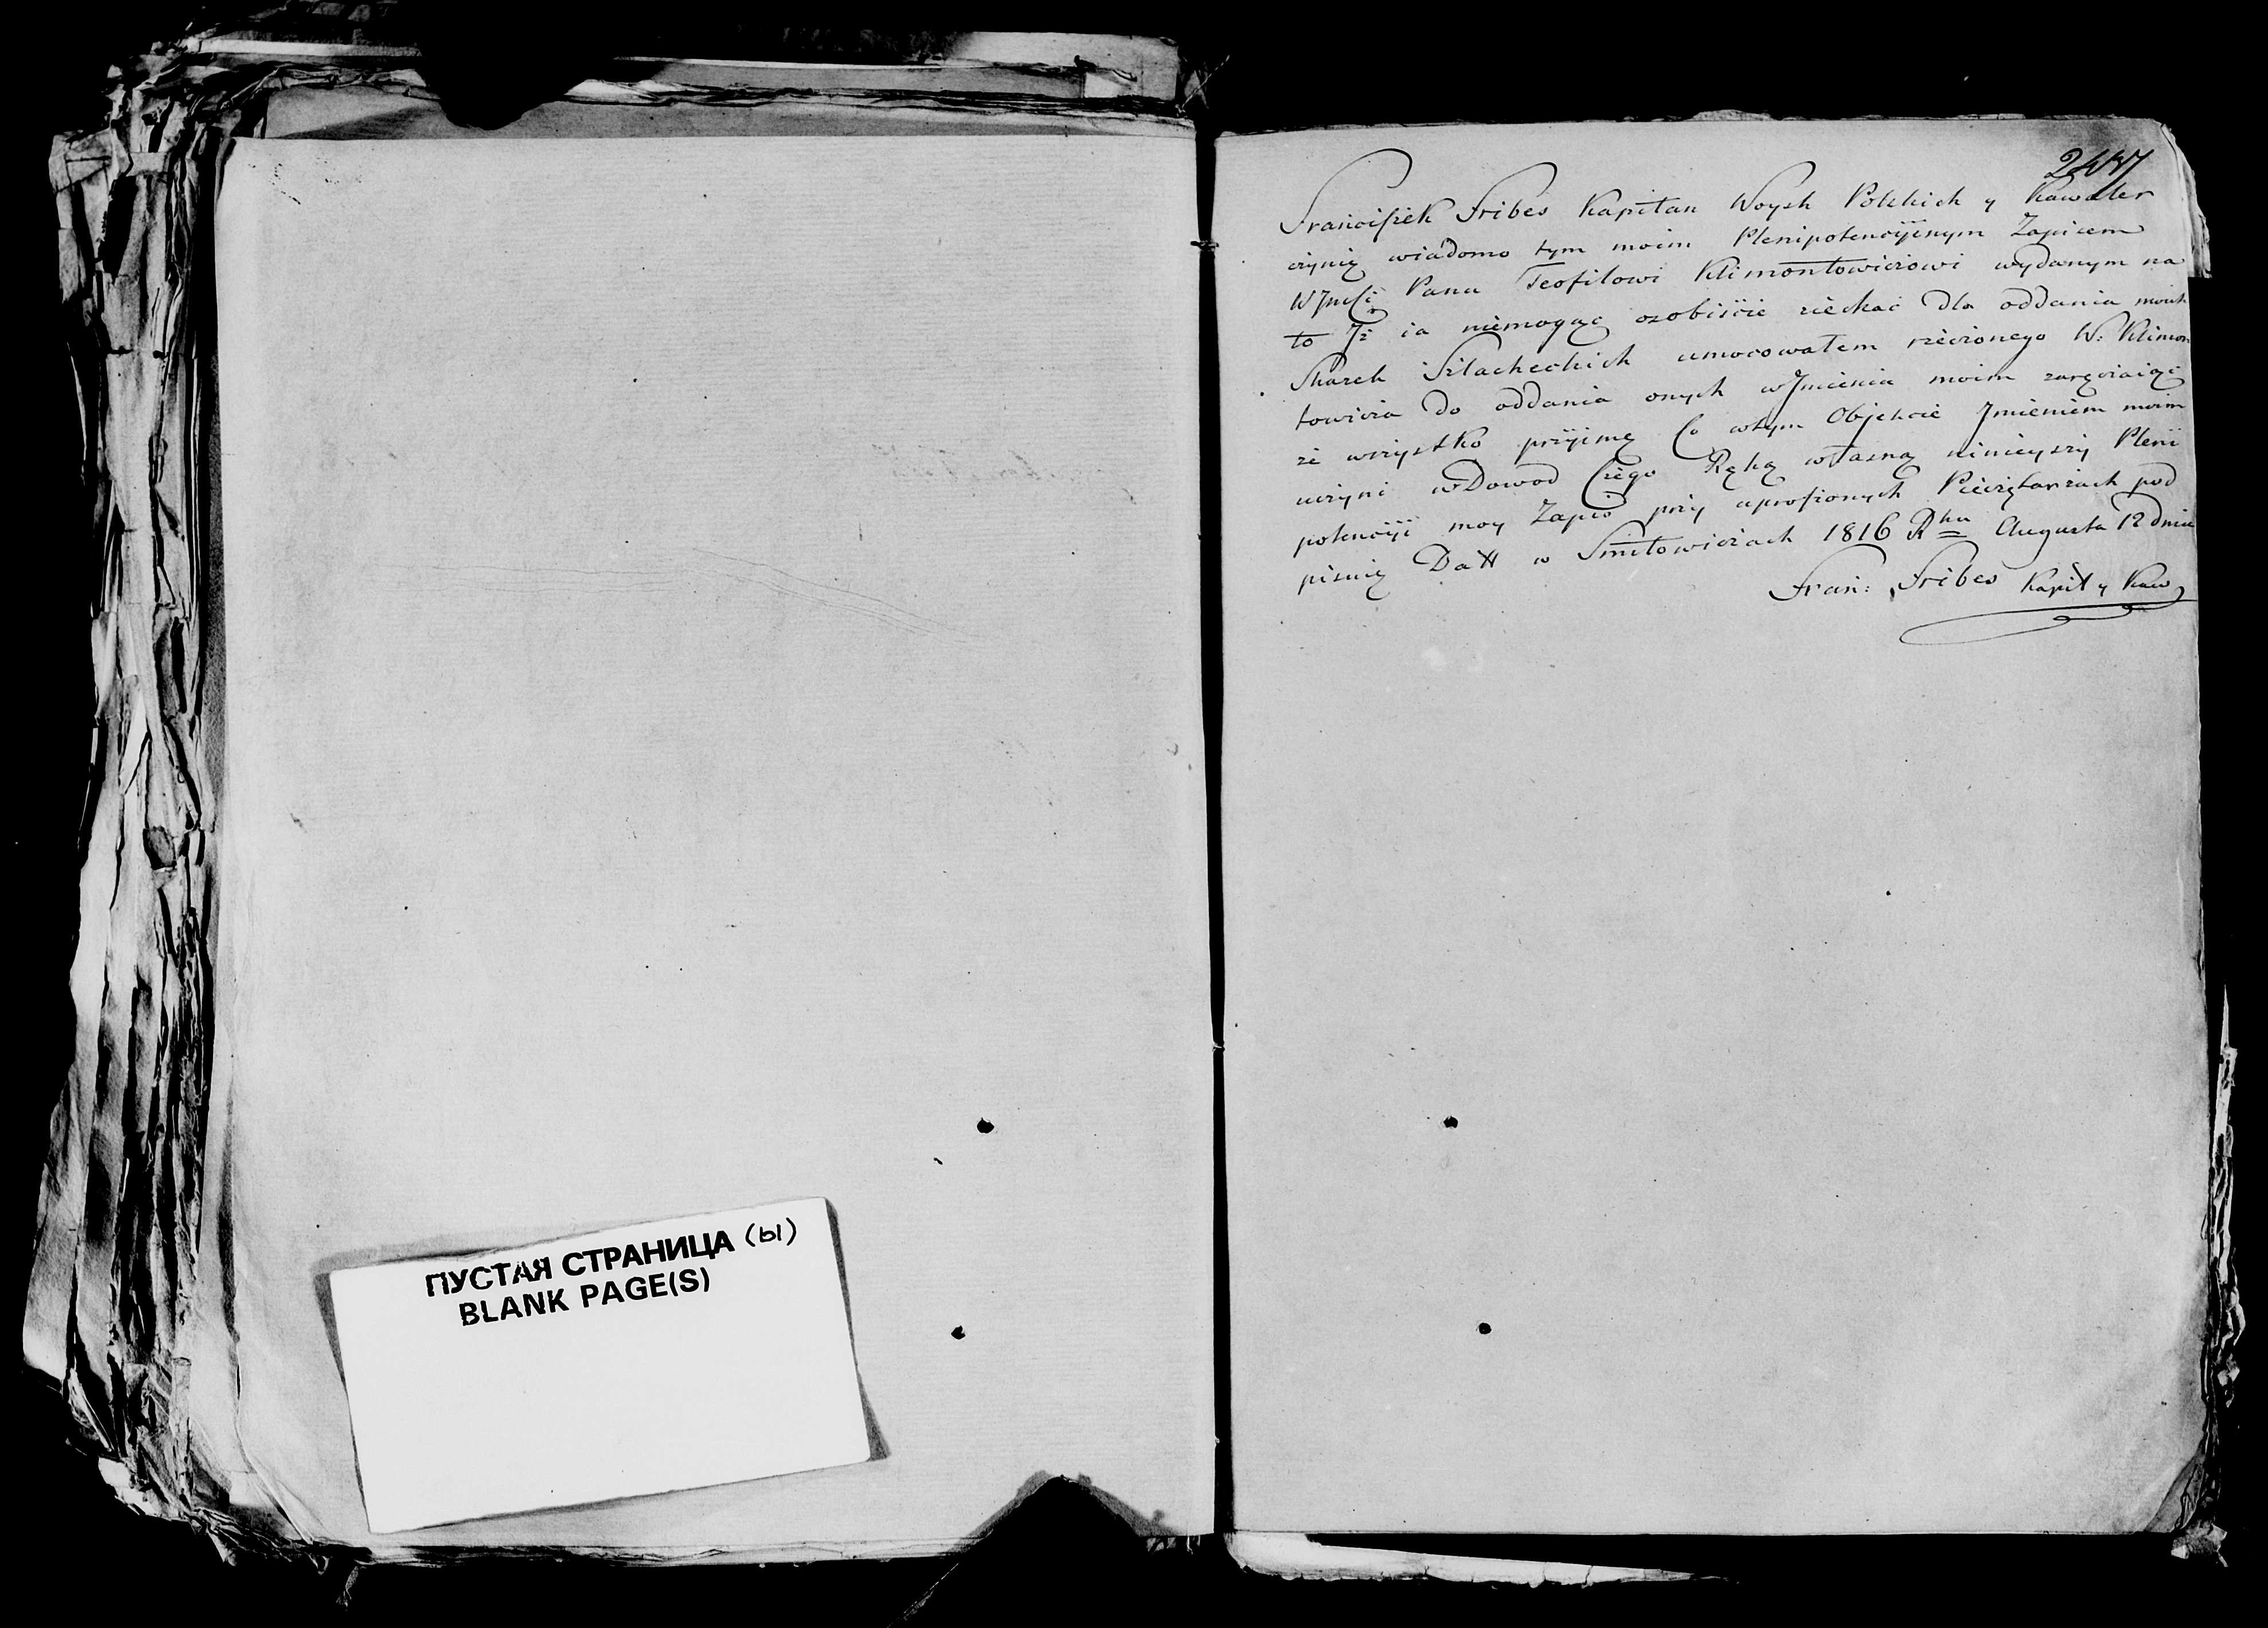 ПУСТАЯ СТРАНИЦА (ы)
BLANK PAGE(S)
Franciszek Fribes Kapitan Woysk Polskich y Kawaler
czynię wiadomo tym moim Plenipotencijinym Zapisem
WJmści Panu Teofilowi Klimontowiczowi wydanym na
to Jż ia niemogąc osobiście ziechać dla oddania moich
Skazek Szlacheckich umocowałem rzeczonego W: Klimon
towicza do oddania onych wJmienia moim zaręczaiąc
że wszystko przyimę Co wtym Objekcie Jmieniem moim
uczyni wDowod Czego Ręką własną ninieyszy Pleni
potencyi moy Zapis przy uproszonych Pieczętarzach pod
pisuię Datt w Smiłowiczach 1816 Rku Augusta 12 dnia
Fran: Fribes Kapit y Kaw